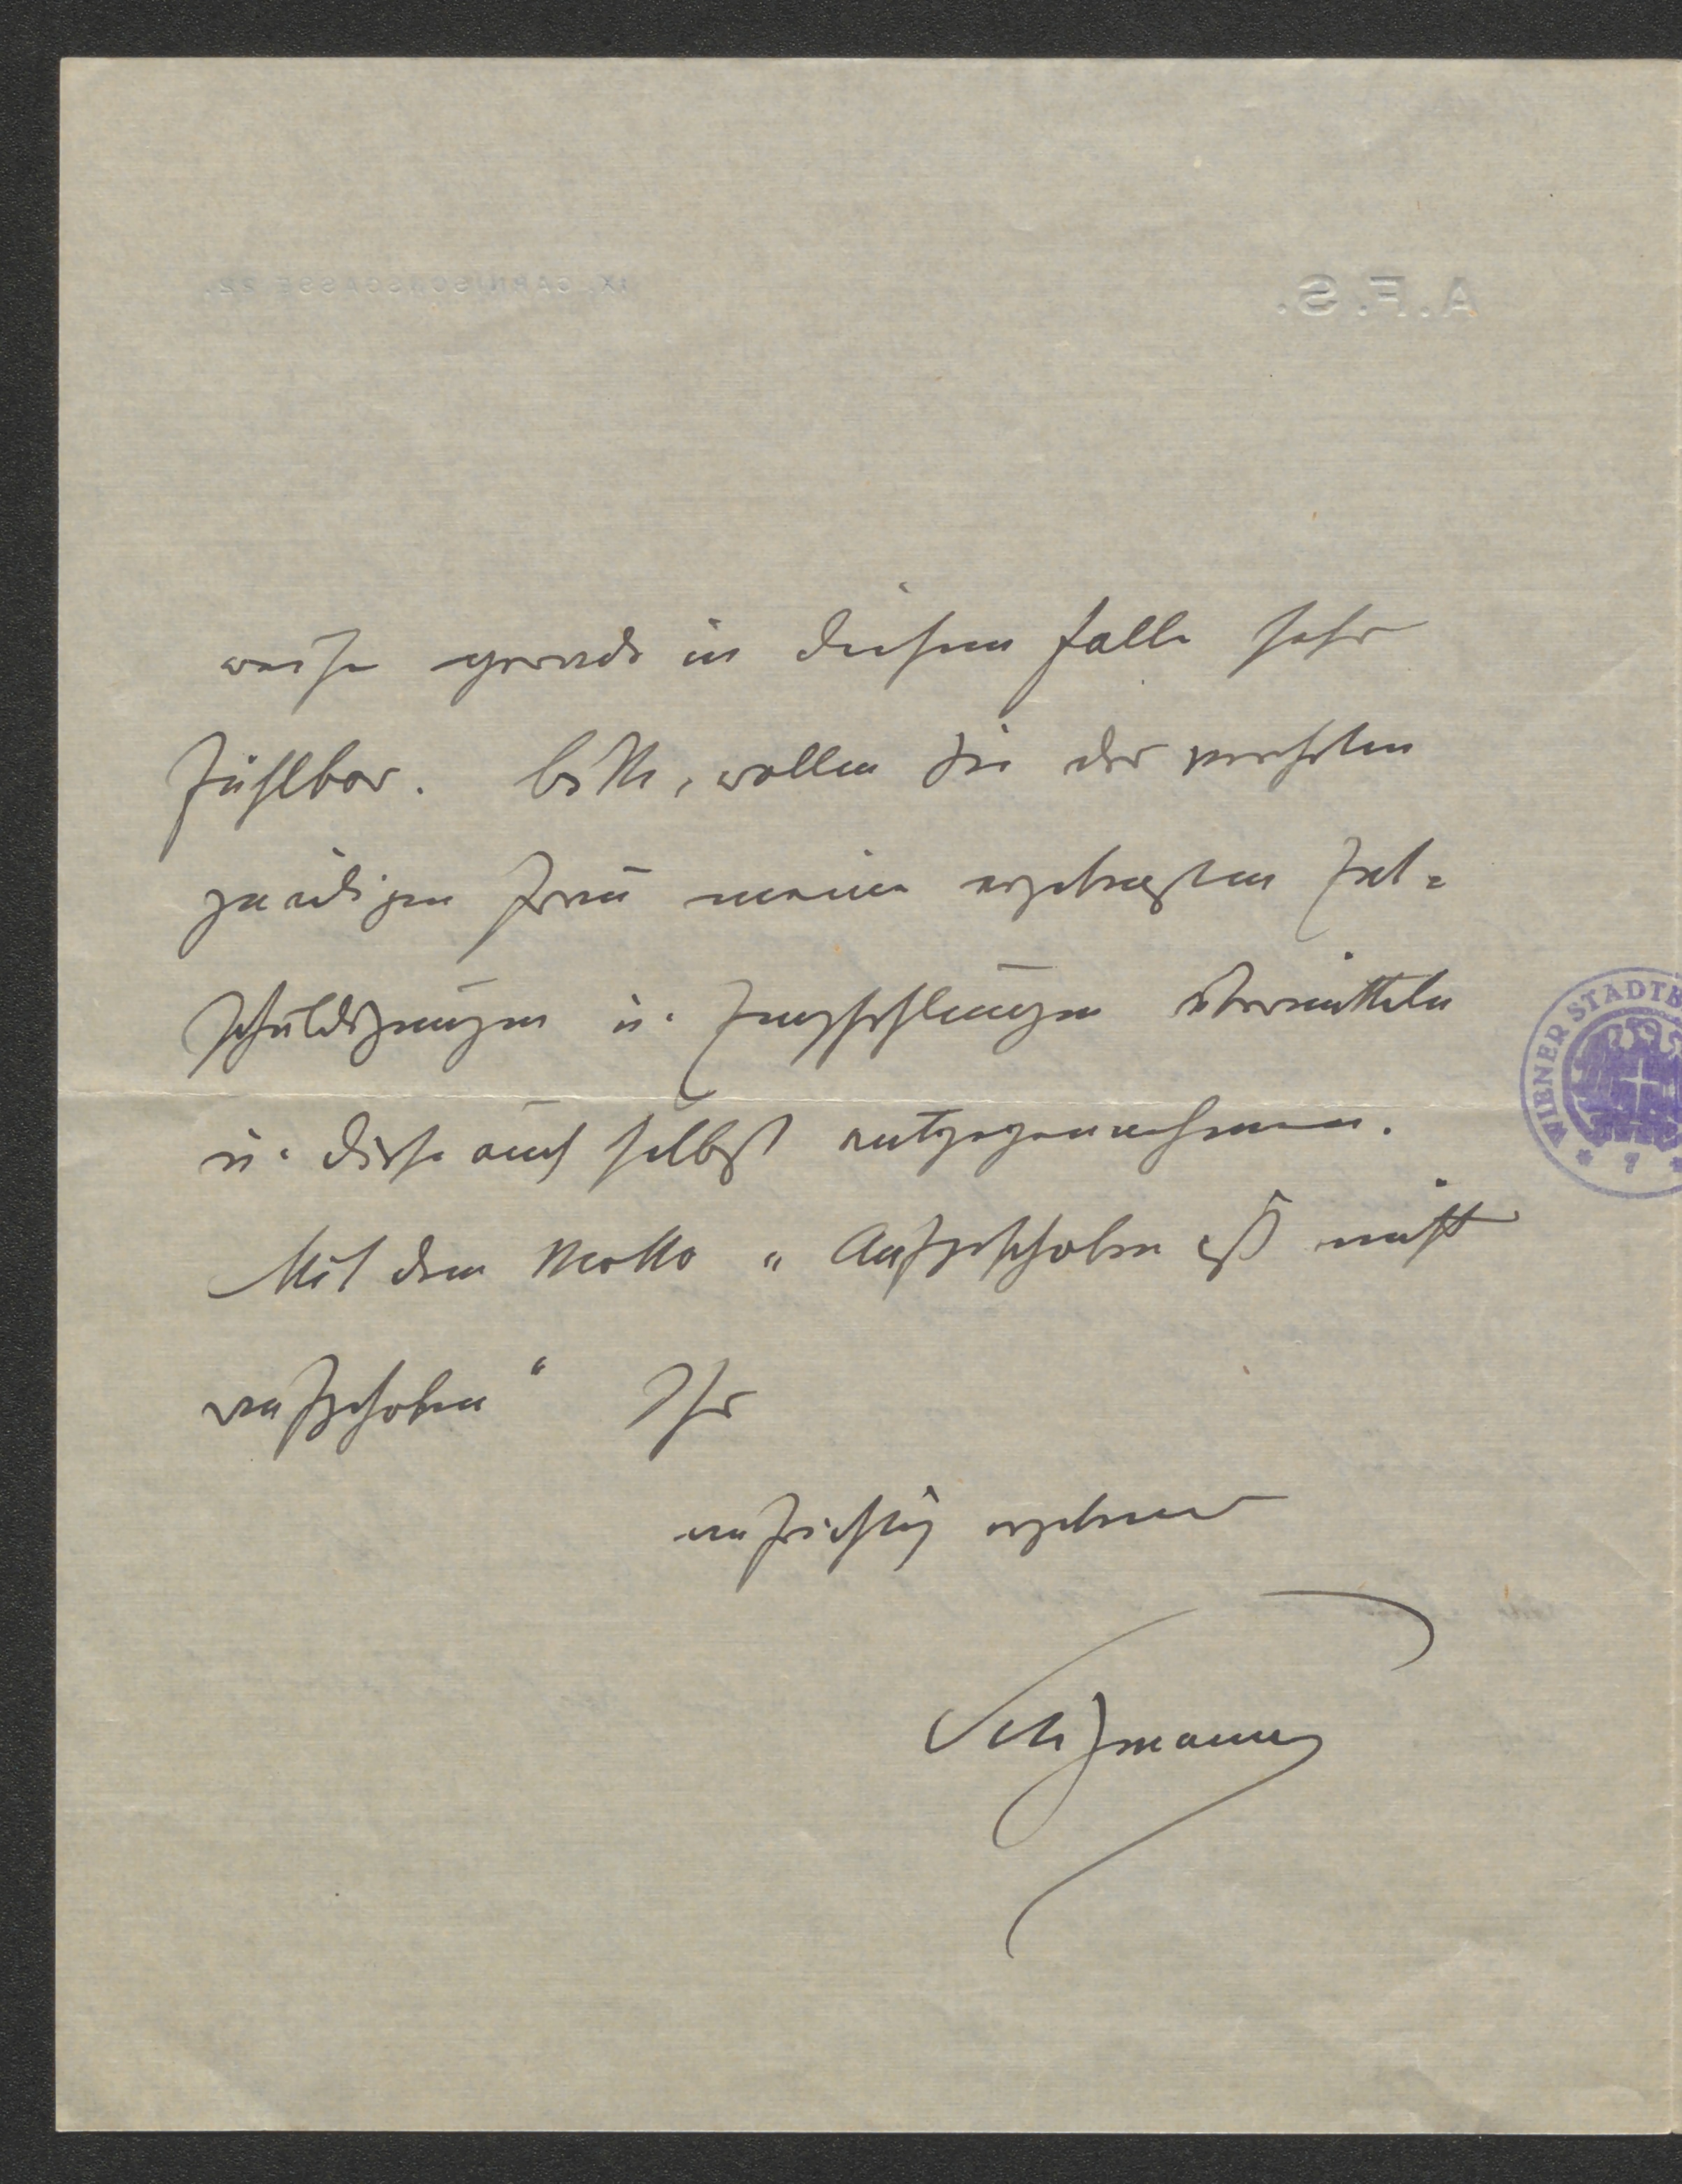 A.F.S.
IX, GARNISONGASSE 22.
weise gerade in diesem Falle sehr
fühlbar. Bitte, wollen Sie der verehrten
gnädigen Frau meine ergebensten Ent-
schuldigungen u. Empfehlungen übermitteln
u. diese auch selbst entgegennehmen.
Mit dem Motto „Aufgeschoben ist nicht
aufgehoben“ Ihr
aufrichtig ergebener
WIENER STADTB